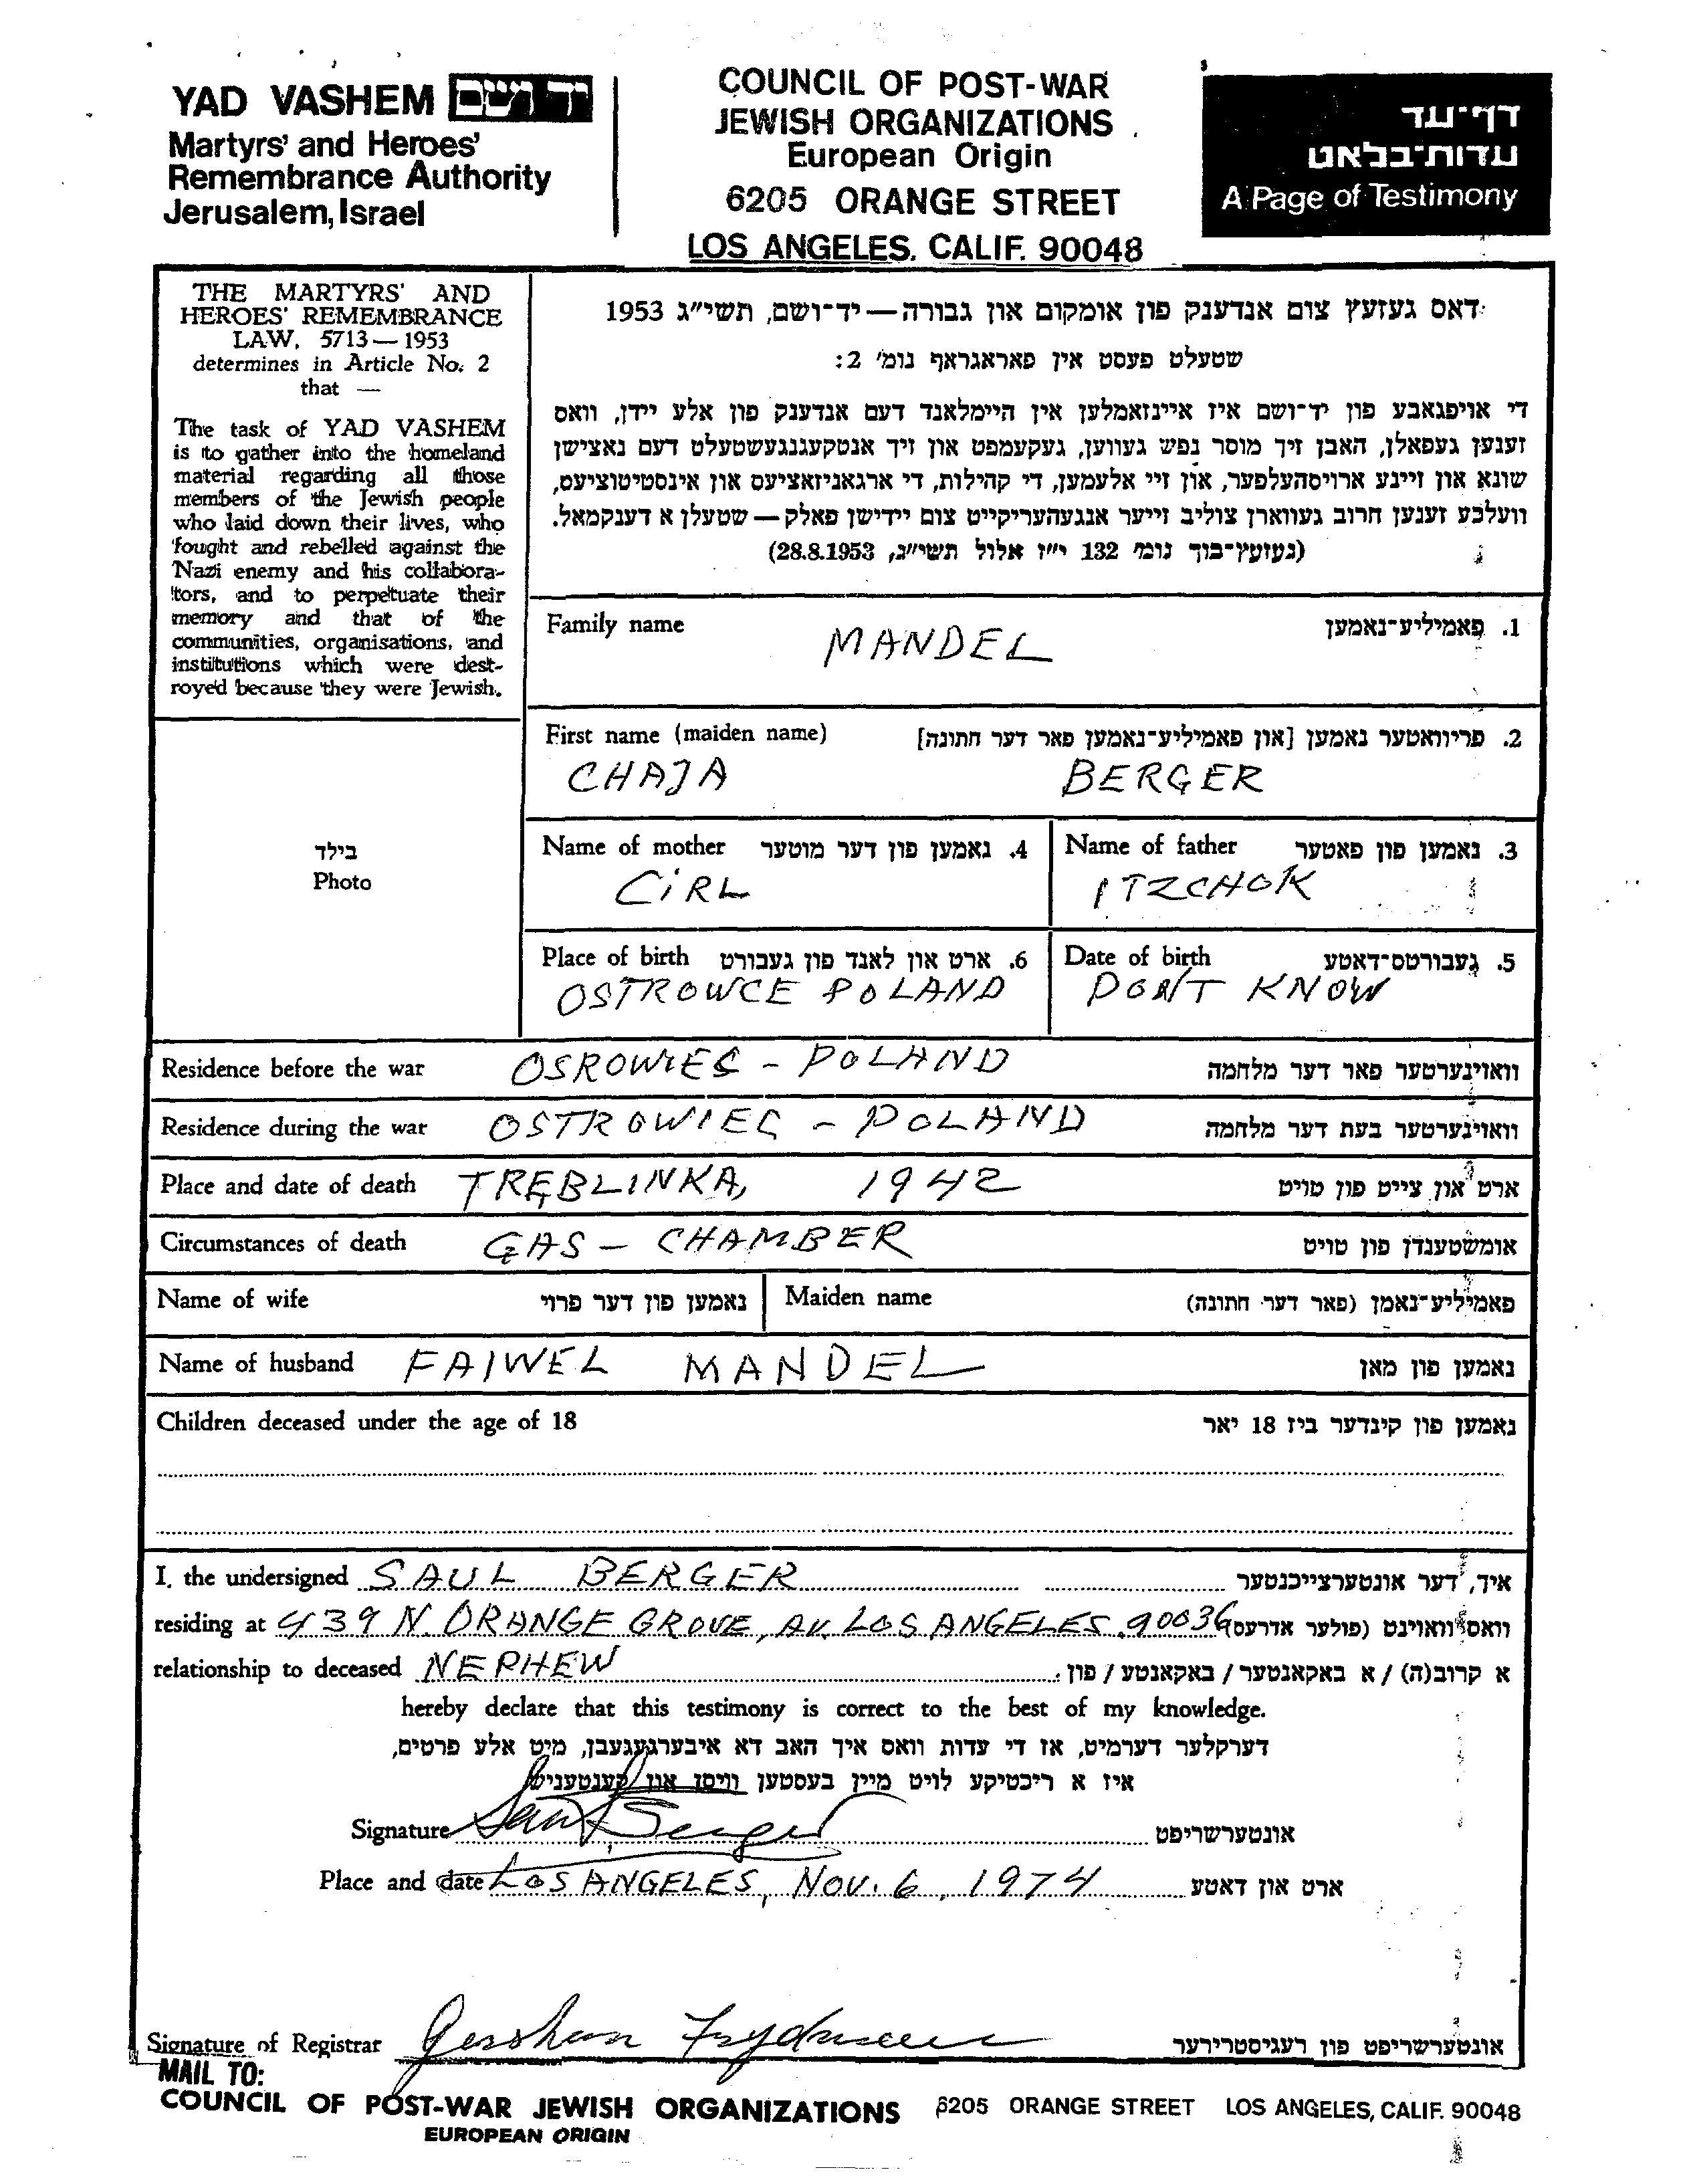 YAD VASHEM יד ושם
Martyrs' and Heroes'
Remembrance Authority
Jerusalem, Israel
COUNCIL OF POST-WAR
JEWISH ORGANIZATIONS
European Origin
6205 ORANGE STREET
LOS ANGELES, CALIF. 90048
דף-עד
עדות-בלאט
A Page of Testimony
THE MARTYRS' AND
HEROES' REMEMBRANCE
LAW, 5713—1953
determines in Article No. 2
that —
The task of YAD VASHEM
is to gather into the homeland
material regarding all those
members of the Jewish people
who laid down their lives, who
fought and rebelled against the
Nazi enemy and his collabora-
tors, and to perpetuate their
memory and that of the
communities, organisations, and
institutions which were dest-
royed because they were Jewish.
דאס געזעץ צום אנדענק פון אומקום און גבורה — יד-ושם, תשי"ג 1953
שטעלט פעסט אין פאראגראף נומ' 2:
די אויפגאבע פון יד-ושם איז איינזאמלען אין היימלאנד דעם אנדענק פון אלע יידן, וואס
זענען געפאלן, האבן זיך מוסר נפש געווען, געקעמפט און זיך אנטקעגנגעשטעלט דעם נאצישן
שונא און זיינע ארויסהעלפער, און זיי אלעמען, די קהילות, די ארגאניזאציעס און אינסטיטוציעס,
וועלכע זענען חרוב געווארן צוליב זייער אנגעהעריקייט צום יידישן פאלק — שטעלן א דענקמאל.
(געזעץ-בוך נומ' 132 י"ז אלול תשי"ג, 28.8.1953)
Family name MANDEL 1. פאמיליע-נאמען
First name (maiden name) 2. פריוואטער נאמען [און פאמיליע-נאמען פאר דער חתונה]
CHAJA BERGER
Name of mother 4. נאמען פון דער מוטער
CIRL
Name of father 3. נאמען פון פאטער
ITZCHOK
Place of birth 6. ארט און לאנד פון געבורט
OSTROWCE POLAND
Date of birth 5. געבורטס-דאטע
DON'T KNOW
Photo בילד
Residence before the war OSROWIEC - POLAND וואוינערטער פאר דער מלחמה
Residence during the war OSTROWIEC - POLAND וואוינערטער בעת דער מלחמה
Place and date of death TREBLINKA, 1942 ארט און צייט פון טויט
Circumstances of death GAS - CHAMBER אומשטענדן פון טויט
Name of wife נאמען פון דער פרוי Maiden name פאמיליע-נאמן (פאר דער חתונה)
Name of husband FAIWEL MANDEL נאמען פון מאן
Children deceased under the age of 18 נאמען פון קינדער ביז 18 יאר
I, the undersigned SAUL BERGER איך, דער אונטערצייכנטער
residing at 439 N. ORANGE GROVE, AV. LOS ANGELES, 90036 וואס וואוינט (פולער אדרעס)
relationship to deceased NEPHEW א קרוב(ה) / א באקאנטער / באקאנטע / פון:
hereby declare that this testimony is correct to the best of my knowledge.
דערקלער דערמיט, אז די עדות וואס איך האב דא איבערגעגעבן, מיט אלע פרטים,
איז א ריכטיקע לויט מיין בעסטען וויסן און קענטעניש
Signature Saul Berger אונטערשריפט
Place and date LOS ANGELES, NOV. 6, 1974 ארט און דאטע
Signature of Registrar Gershon אונטערשריפט פון רעגיסטרירער
MAIL TO:
COUNCIL OF POST-WAR JEWISH ORGANIZATIONS 6205 ORANGE STREET LOS ANGELES, CALIF. 90048
EUROPEAN ORIGIN